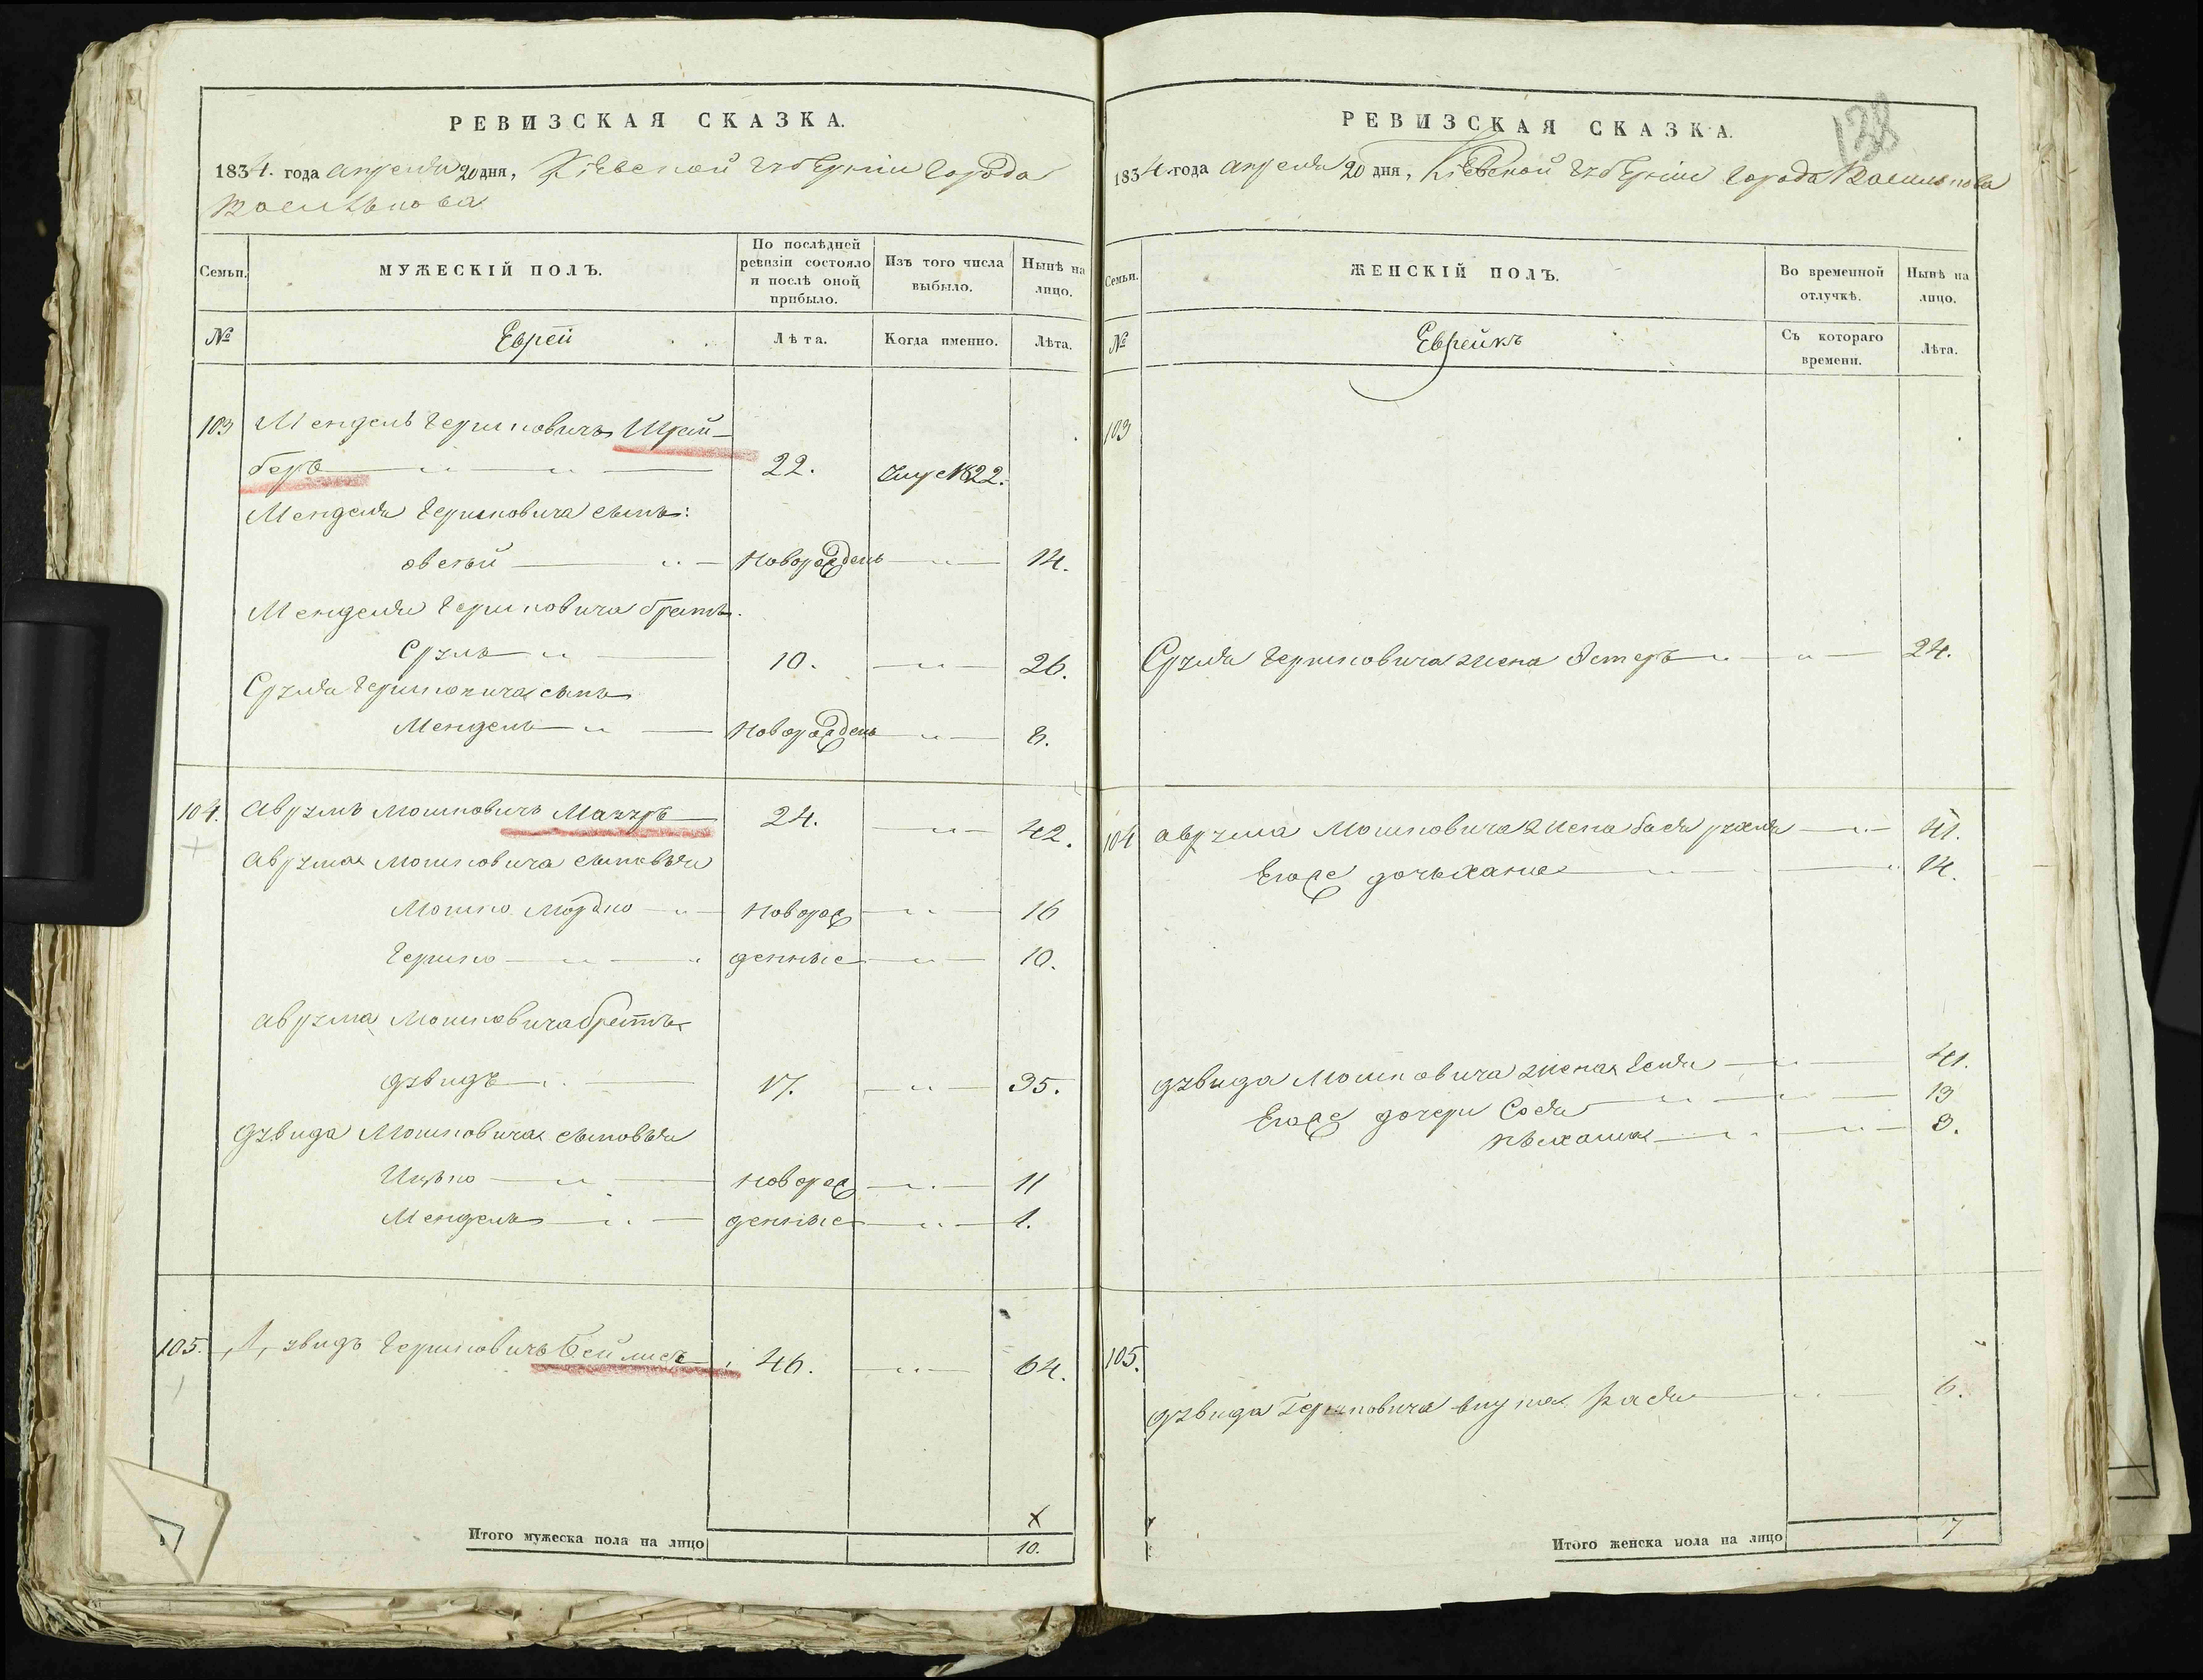 РЕВИЗСКАЯ СКАЗКА.
1834. года апреля 20 дня, Кіевской губерніи города
Василькова
Семьи.
МУЖЕСКІЙ ПОЛЪ.
По послѣдней ревизіи состояло и послѣ оной прибыло.
Изъ того числа выбыло.
Нынѣ на лицо.
№
Еврей
Лѣта.
Когда именно.
Лѣта.
103 Мендель Гершковичъ Шрай-
беръ 22. 1822.
Менделя Гершковича сынъ:
Овсей Новорожденъ 14.
Менделя Гершковича братъ.
Сруль 10. 26.
Сруля Гершковича сынъ
Мендель Новорожденъ 8.
104. Аврумъ Мошковичъ Мазуръ 24. 42.
Аврума Мошковича сыновья
Мошко Мордко Новорож 16
Гершко денные 10.
Аврума Мошковича братъ
Дувидъ 17. 35.
Дувида Мошковича сыновья
Ицько Новорож 11
Мендель денные 1.
105. Дувидъ Гершковичъ Бейлисъ 46. 64.
Итого мужеска пола на лицо 10.
138
РЕВИЗСКАЯ СКАЗКА.
1834 года апреля 20 дня, Кіевской губерніи города Василькова
Семьи.
ЖЕНСКІЙ ПОЛЪ.
Во временной отлучкѣ.
Нынѣ на лицо.
№
Еврейкъ
Съ котораго времени.
Лѣта.
103
Сруля Гершковича жена Эстеръ 24.
104 Аврума Мошковича жена Бася Рухля 41.
Егоже дочь Хана 14.
Дувида Мошковича жена 41.
Егоже дочери Сося 13
3.
105.
Дувида Гершковича внука 6.
Итого женска пола на лицо 7